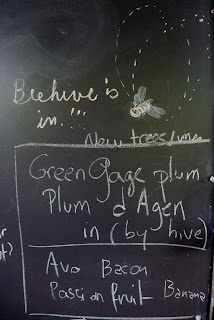 Beehive is
in!!!
New trees/vines
Green Gage plum
Plum d'Agen
in (by hive)
Avo Bacon
Passion fruit Banana